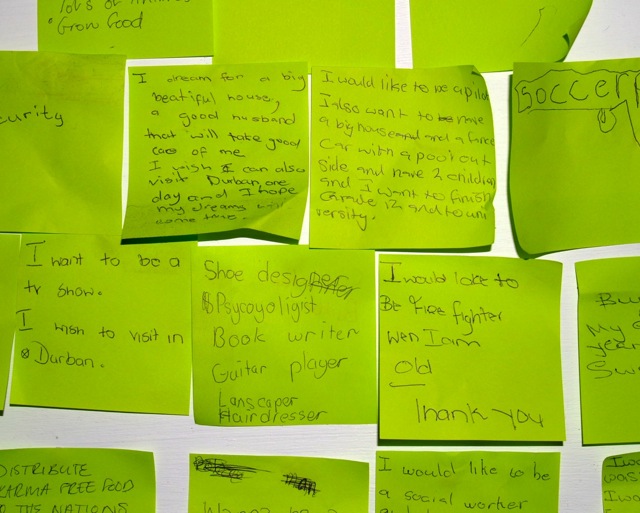 lots of
• Grow Food
curity
I dream for a big
beautiful house,
a good husband
that will take good
care of me
I wish I can also
visit Durban one
day and I hope
my dreams will
come true.
I would like to be a pilot
I also want to have
a big house and a fance
Car with a pool out
side and have 2 children
and I want to finish
Grade 12 and to uni
versity.
Soccer
I want to be a
tv show.
I wish to visit in
Durban.
Shoe designer
Psycoyoligist
Book writer
Guitar player
Lanscaper
Hairdresser
I would loke to
Be fire fighter
wen I am
old
Thank you
Bu
My
year
Sw
DISTRIBUTE
KARMA FREE FOOD
TO THE NATIONS
I would like to be
a social worker
I wo
was
I wo